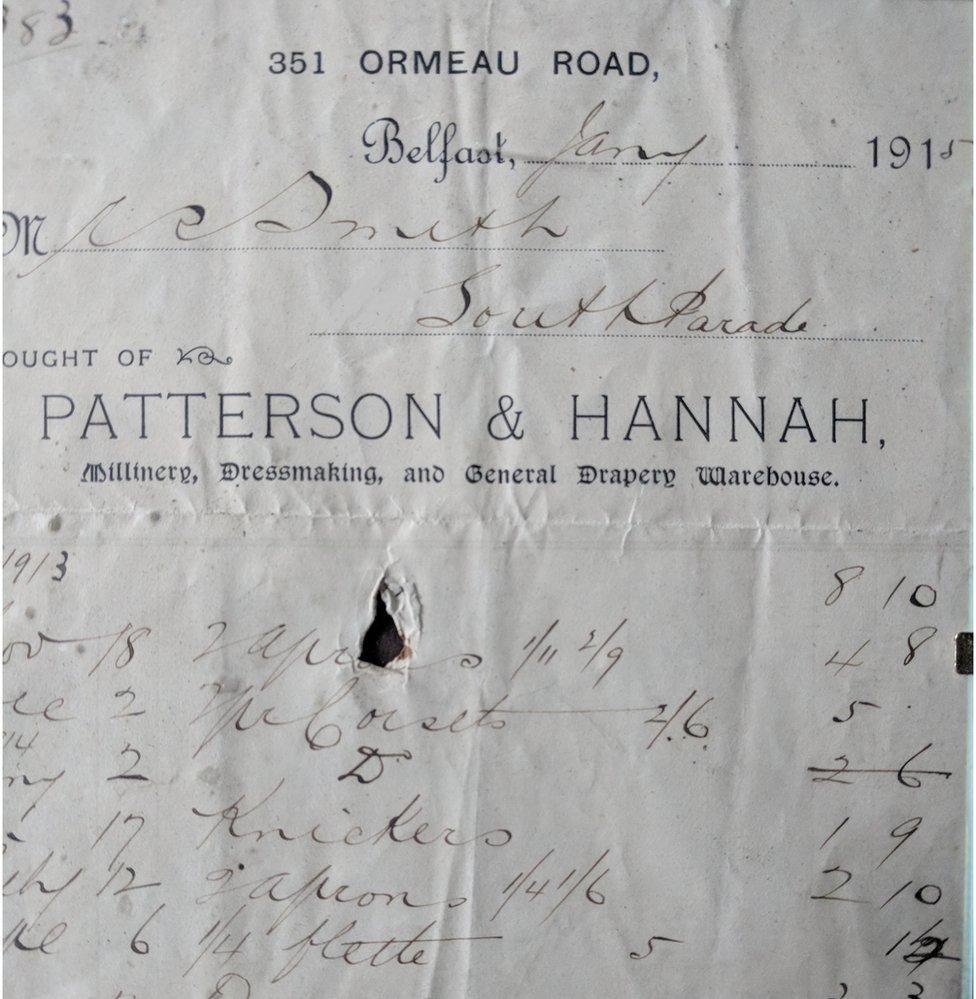 383
351 ORMEAU ROAD,
Belfast, Jany 1915
M Smith
South Parade
OUGHT OF
PATTERSON & HANNAH,
Millinery, Dressmaking, and General Drapery Warehouse.
1913 8 10
ov 18 2 aprons 1/11 2/9 4 8
ec 2 2 pr Corsets 2/6 5
14
ny 2 D 2 6
17 Knickers 1 9
eby 12 2 aprons 1/4 1/6 2 10
6 1/4 flette 5